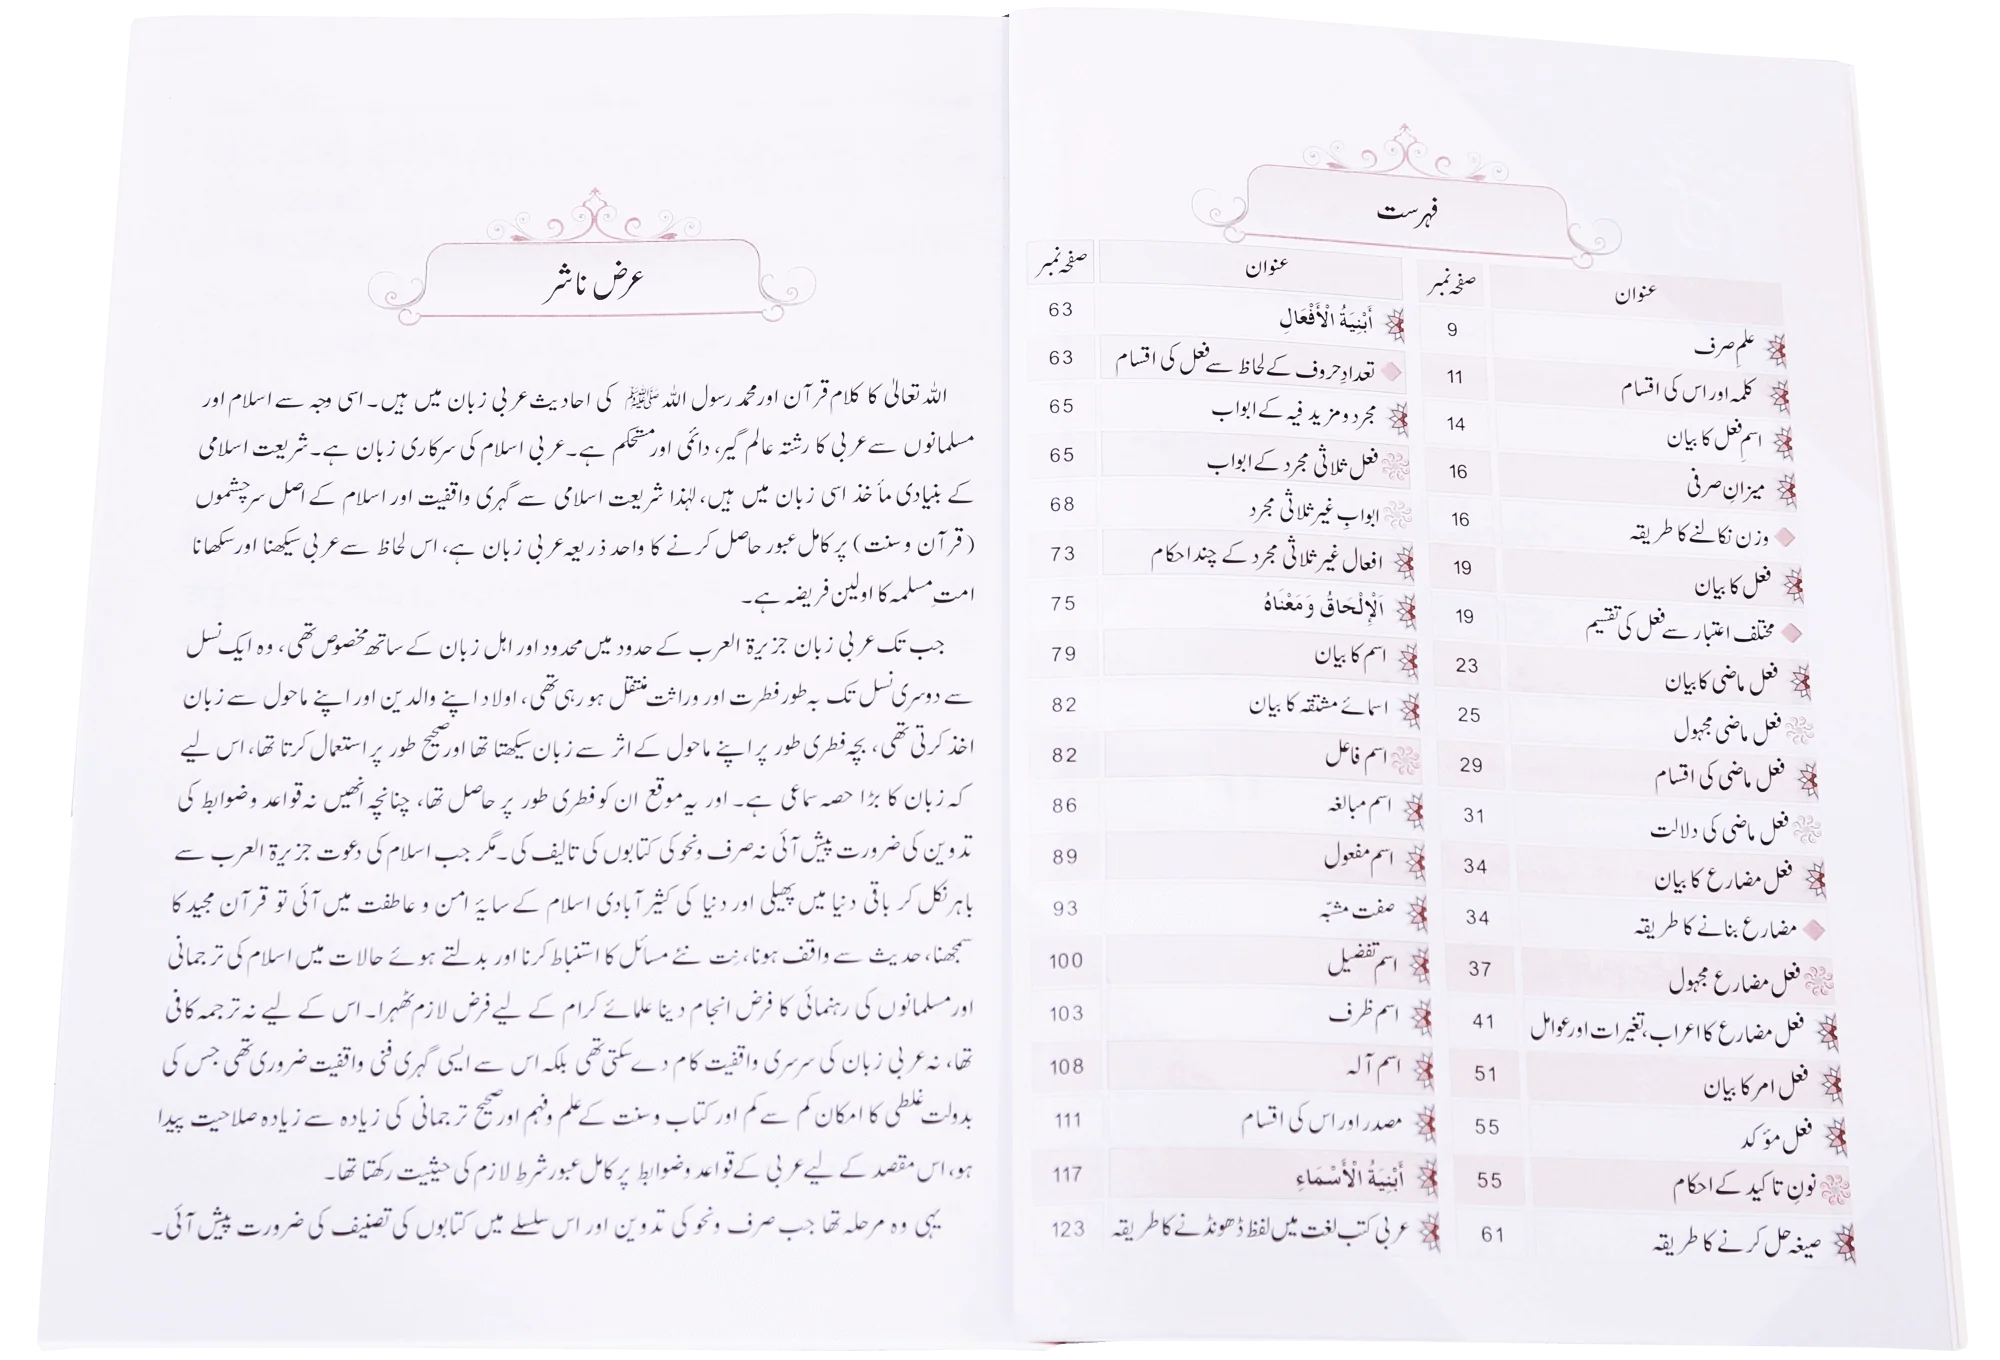 فہرست
عنوان صفحہ نمبر
علمِ صرف 9
کلمہ اور اس کی اقسام 11
اسمِ فعل کا بیان 14
میزانِ صرفی 16
وزن نکالنے کا طریقہ 16
فعل کا بیان 19
مختلف اعتبار سے فعل کی تقسیم 19
فعل ماضی کا بیان 23
فعل ماضی مجہول 25
فعل ماضی کی اقسام 29
فعل ماضی کی دلالت 31
فعل مضارع کا بیان 34
مضارع بنانے کا طریقہ 34
فعل مضارع مجہول 37
فعل مضارع کا اعراب، تغیرات اور عوامل 41
فعل امر کا بیان 51
فعل مؤکد 55
نونِ تاکید کے احکام 55
صیغہ حل کرنے کا طریقہ 61
عنوان صفحہ نمبر
أَبْنِيَةُ الْأَفْعَالِ 63
تعدادِ حروف کے لحاظ سے فعل کی اقسام 63
مجرد و مزید فیہ کے ابواب 65
فعل ثلاثی مجرد کے ابواب 65
ابوابِ غیر ثلاثی مجرد 68
افعال غیر ثلاثی مجرد کے چند احکام 73
اَلْإِلْحَاقُ وَمَعْنَاهُ 75
اسم کا بیان 79
اسمائے مشتقہ کا بیان 82
اسم فاعل 82
اسم مبالغہ 86
اسم مفعول 89
صفت مشبّہ 93
اسم تفضیل 100
اسم ظرف 103
اسم آلہ 108
مصدر اور اس کی اقسام 111
أَبْنِيَةُ الْأَسْمَاءِ 117
عربی کتب لغت میں لفظ ڈھونڈنے کا طریقہ 123
عرض ناشر
اللہ تعالیٰ کا کلام قرآن اور محمد رسول اللہ ﷺ کی احادیث عربی زبان میں ہیں۔ اسی وجہ سے اسلام اور
مسلمانوں سے عربی کا رشتہ عالم گیر، دائمی اور مستحکم ہے۔ عربی اسلام کی سرکاری زبان ہے۔ شریعت اسلامی
کے بنیادی مأخذ اسی زبان میں ہیں، لہٰذا شریعت اسلامی سے گہری واقفیت اور اسلام کے اصل سرچشموں
(قرآن و سنت) پر کامل عبور حاصل کرنے کا واحد ذریعہ عربی زبان ہے، اس لحاظ سے عربی سیکھنا اور سکھانا
امتِ مسلمہ کا اولین فریضہ ہے۔
جب تک عربی زبان جزیرۃ العرب کے حدود میں محدود اور اہل زبان کے ساتھ مخصوص تھی، وہ ایک نسل
سے دوسری نسل تک بہ طور فطرت اور وراثت منتقل ہو رہی تھی، اولاد اپنے والدین اور اپنے ماحول سے زبان
اخذ کرتی تھی، بچہ فطری طور پر اپنے ماحول کے اثر سے زبان سیکھتا تھا اور صحیح طور پر استعمال کرتا تھا، اس لیے
کہ زبان کا بڑا حصہ سماعی ہے۔ اور یہ موقع ان کو فطری طور پر حاصل تھا، چنانچہ انھیں نہ قواعد و ضوابط کی
تدوین کی ضرورت پیش آئی نہ صرف ونحو کی کتابوں کی تالیف کی۔ مگر جب اسلام کی دعوت جزیرۃ العرب سے
باہر نکل کر باقی دنیا میں پھیلی اور دنیا کی کثیر آبادی اسلام کے سایۂ امن و عاطفت میں آئی تو قرآن مجید کا
سمجھنا، حدیث سے واقف ہونا، نِت نئے مسائل کا استنباط کرنا اور بدلتے ہوئے حالات میں اسلام کی ترجمانی
اور مسلمانوں کی رہنمائی کا فرض انجام دینا علمائے کرام کے لیے فرض لازم ٹھہرا۔ اس کے لیے نہ ترجمہ کافی
تھا، نہ عربی زبان کی سرسری واقفیت کام دے سکتی تھی بلکہ اس سے ایسی گہری فنی واقفیت ضروری تھی جس کی
بدولت غلطی کا امکان کم سے کم اور کتاب و سنت کے علم و فہم اور صحیح ترجمانی کی زیادہ سے زیادہ صلاحیت پیدا
ہو، اس مقصد کے لیے عربی کے قواعد و ضوابط پر کامل عبور شرطِ لازم کی حیثیت رکھتا تھا۔
یہی وہ مرحلہ تھا جب صرف ونحو کی تدوین اور اس سلسلے میں کتابوں کی تصنیف کی ضرورت پیش آئی۔